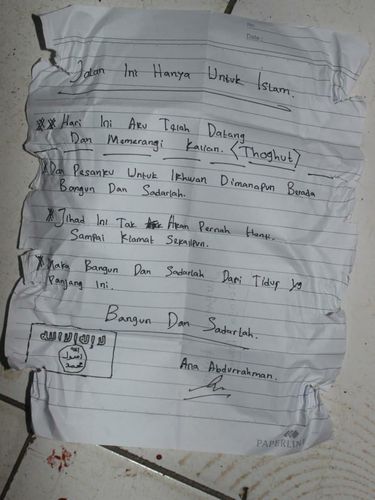 No:
Date:
Jalan Ini Hanya Untuk Islam.
** Hari Ini Aku Telah Datang
Dan Memerangi Kalian. <Thoghut>
* Dan Pesanku Untuk Ikhwan Dimanapun Berada
Bangun Dan Sadarlah.
* Jihad Ini Tak Akan Pernah Henti
Sampai Kiamat Sekalipun.
* Maka Bangun Dan Sadarlah Dari Tidur yg
Panjang Ini.
Bangun Dan Sadarlah.
لا إله إلا الله
الله
رسول
محمد
Ana Abdurrahman.
PAPERLINE